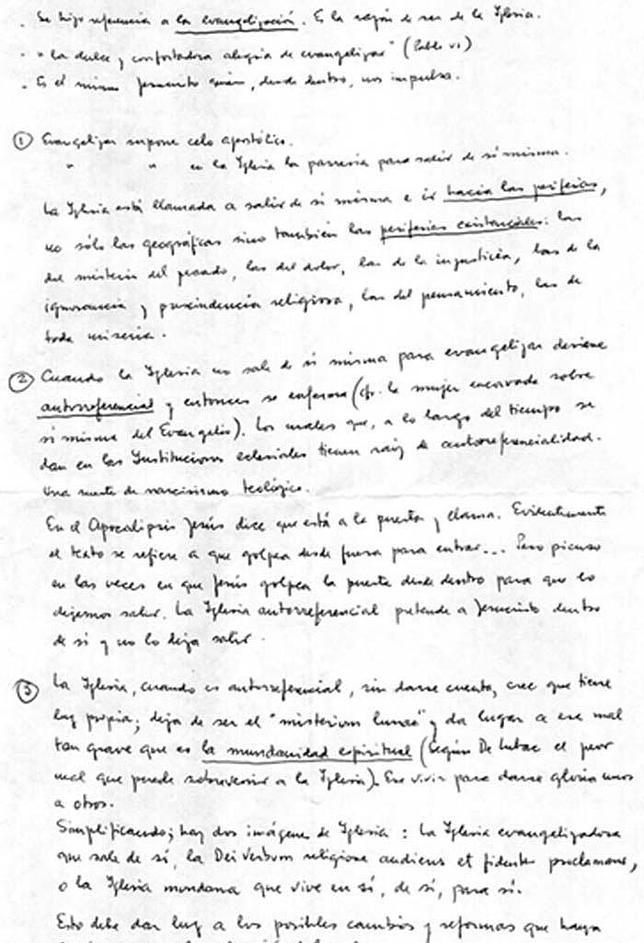 - Se hizo referencia a la evangelización. Es la razón de ser de la Iglesia.
- "la dulce y confortadora alegría de evangelizar" (Pablo VI)
- Es el mismo Jesucristo quien, desde dentro, nos impulsa.
① Evangelizar supone celo apostólico.
" " en la Iglesia la parresía para salir de sí misma.
La Iglesia está llamada a salir de sí misma e ir hacia las periferias,
no sólo las geográficas sino también las periferias existenciales: las
del misterio del pecado, las del dolor, las de la injusticia, las de la
ignorancia y prescindencia religiosa, las del pensamiento, las de
toda miseria.
② Cuando la Iglesia no sale de sí misma para evangelizar deviene
autorreferencial y entonces se enferma (cfr. la mujer encorvada sobre
sí misma del Evangelio). Los males que, a lo largo del tiempo se
dan en las Instituciones eclesiales tienen raíz de autorreferencialidad.
Una suerte de narcisismo teológico.
En el Apocalipsis Jesús dice que está a la puerta y llama. Evidentemente
el texto se refiere a que golpea desde fuera para entrar... Pero pienso
en las veces en que Jesús golpea la puerta desde dentro para que lo
dejemos salir. La Iglesia autorreferencial pretende a Jesucristo dentro
de sí y no lo deja salir.
③ La Iglesia, cuando es autorreferencial, sin darse cuenta, cree que tiene
luz propia; deja de ser el "misterium lunae" y da lugar a ese mal
tan grave que es la mundanidad espiritual (Según De Lubac el peor
mal que puede sobrevenir a la Iglesia). Ese vivir para darse gloria unos
a otros.
Simplificando; hay dos imágenes de Iglesia: la Iglesia evangelizadora
que sale de sí, la Dei Verbum religiose audiens et fidenter proclamans,
o la Iglesia mundana que vive en sí, de sí, para sí.
Esto debe dar luz a los posibles cambios y reformas que haya